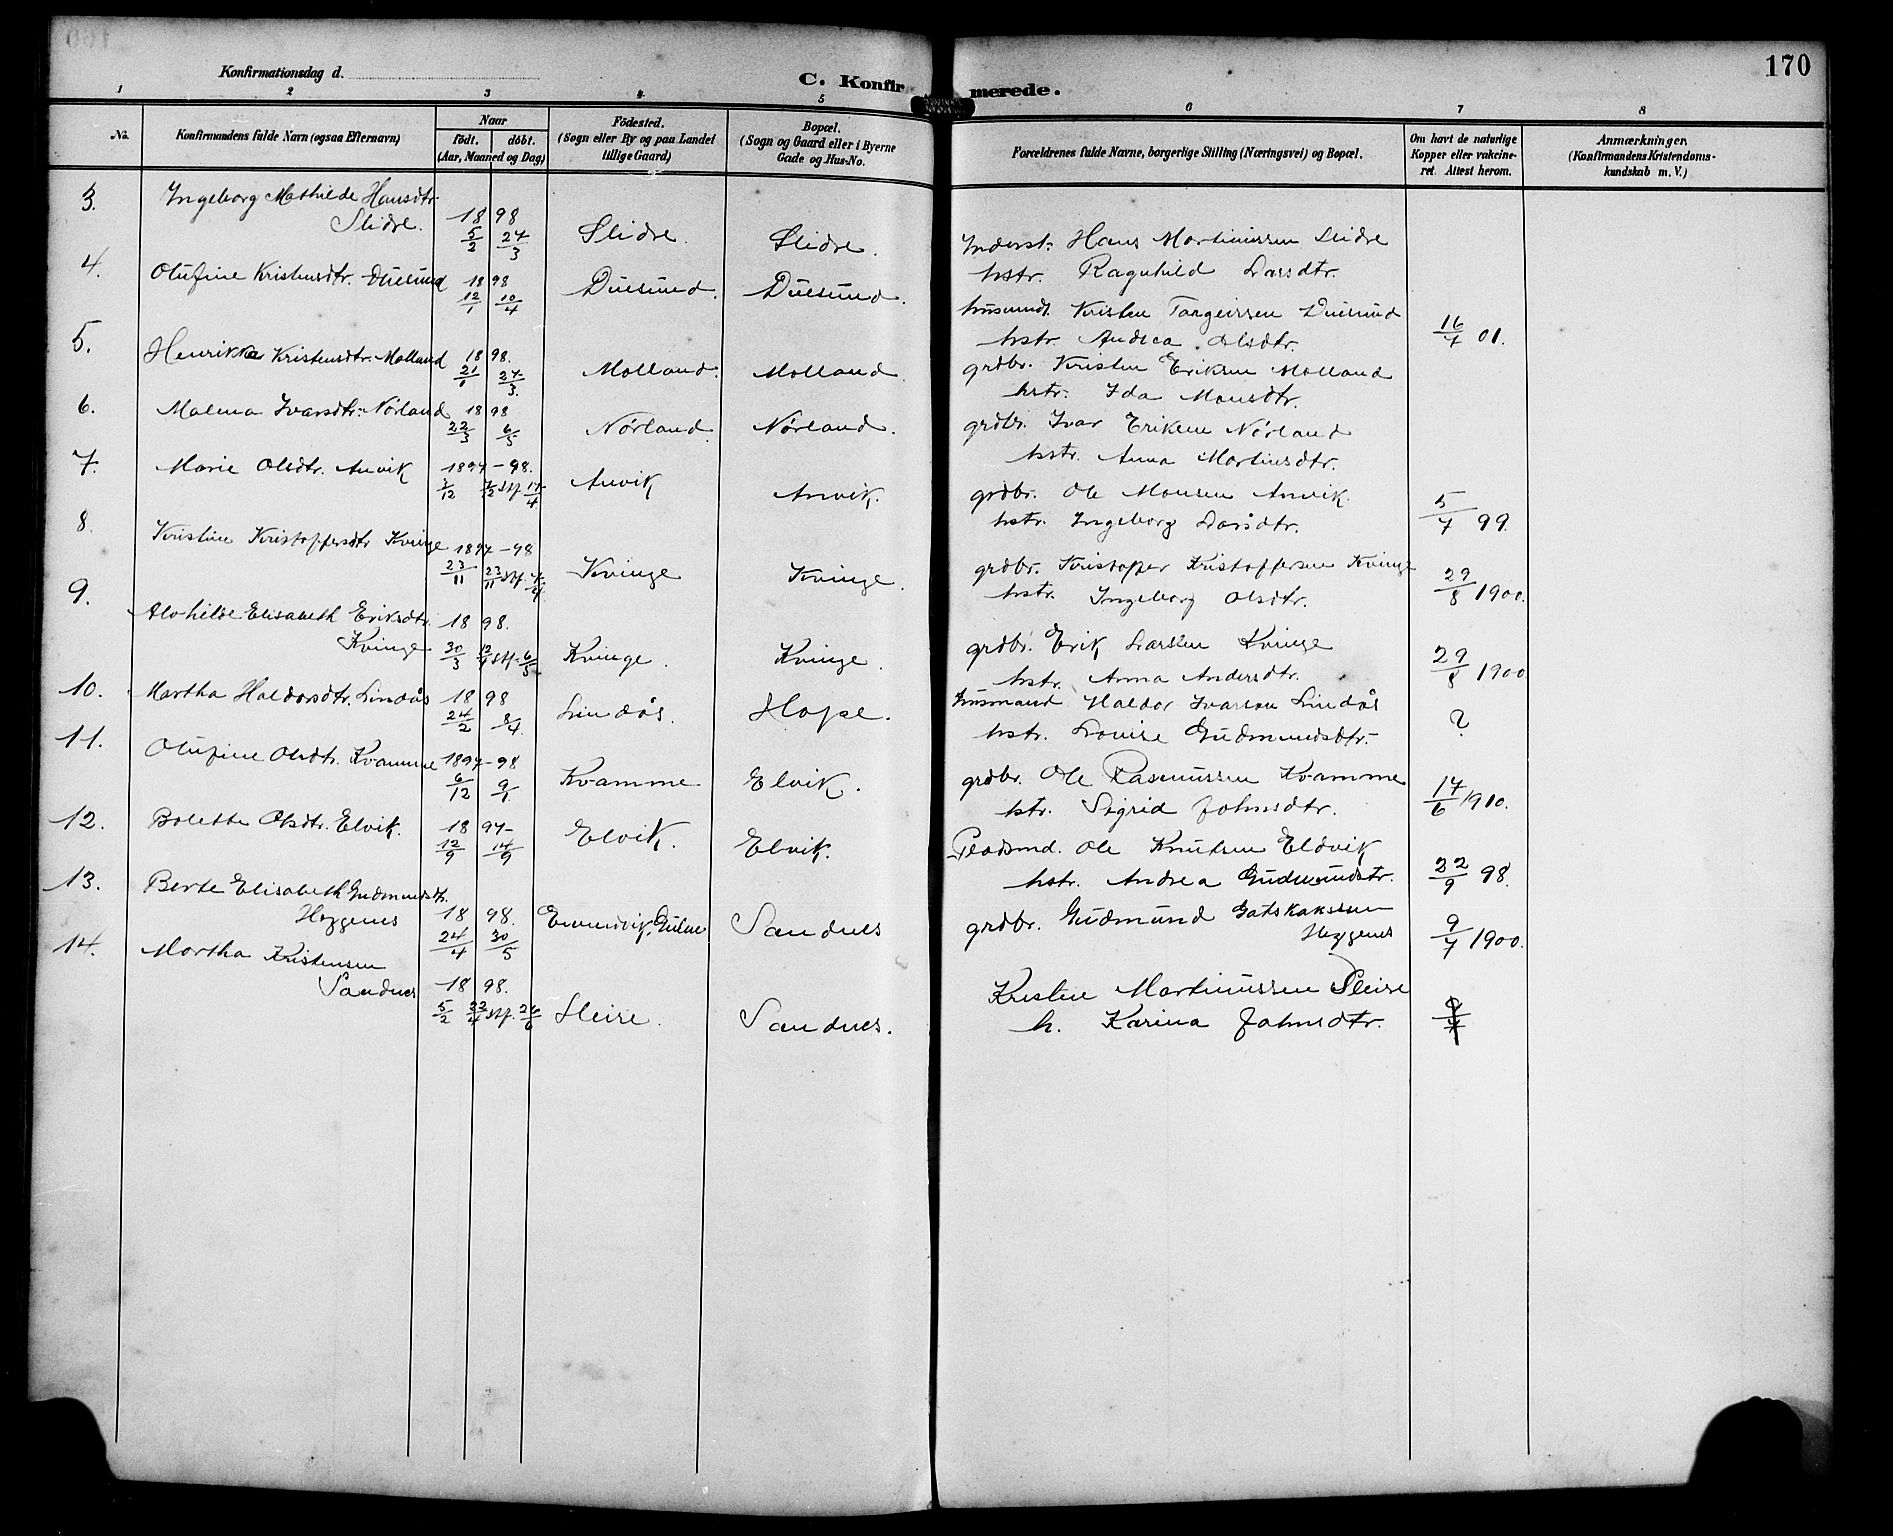 170
Konfirmationsdag d.
C. Konfirmerede.
1 2 3 4 5 6 7 8
No.
Konfirmandens fulde Navn (ogsaa Efternavn)
Naar
født. døbt.
(Aar, Maaned og Dag)
Födested.
(Sogn eller By og paa Landet
tillige Gaard)
Bopæl.
(Sogn og Gaard eller i Byerne
Gade og Hus-No.
Forældrenes fulde Navne, borgerlige Stilling (Næringsvei) og Bopæl.
Om havt de naturlige
Kopper eller vakcine-
ret. Attest herom.
Anmærkninger.
(Konfirmandens Kristendoms-
kundskab m. V.)
3. Ingeborg Mathilde Hansdtr.
Slidre. 1898 5/2 27/3 Slidre. Slidre.
Inderst. Hans Martinussen Slidre
hstr. Ragnhild Larsdtr.
4. Olufine Kristensdtr. Duesund 1898 12/1 10/4 Duesund. Duesund.
husmand. Kristen Torgeirssen Duesund
hstr. Andrea Olsdtr. 16/7 01.
5. Henrikka Kristensdtr. Molland 1898. 21/1 27/3. Molland. Molland.
grdbr. Kristen Eriksen Molland
hstr. Ida Monsdtr.
6. Malena Ivarsdtr. Nørland 1898 22/3 6/5 Nørland. Nørland.
grdbr. Ivar Eriksen Nørland
hstr. Anna Martinsdtr.
7. Marie Olsdtr. Anvik 1897-98. 7/12 stf. 17/4 Anvik Anvik.
grdbr. Ole Monsen Anvik.
hstr. Ingeborg Larsdtr. 5/7 99.
8. Kristine Kristoffersdtr Kvinge 1897-98 23/11 23/11 stf. Kvinge Kvinge.
grdbr. Kristoffer Kristoffersen Kvinge
hstr. Ingeborg Olsdtr. 29/8 1900.
9. Alvhilde Elisabeth Eriksdtr.
Kvinge 1898. 30/3 stf. 6/5 Kvinge. Kvinge.
grdbr. Erik Larssen Kvinge
hstr. Anna Andersdtr. 29/8 1900
10. Martha Haldorsdtr. Lindås 1898 24/2 8/4. Lindås. Hope.
husmand Haldor Ivarson Lindås
hstr. Lovise Gudmundsdtr. ?
11. Olufine Olsdtr. Kvamme 1897-98 6/12 9/1 Kvamme Elvik.
grdbr. Ole Rasmussen Kvamme
hstr. Sigrid Johnsdtr. 17/6 1910.
12. Bolette Olsdtr. Elvik. 1897- 12/9 14/9 Elvik. Elvik.
Pladsmd. Ole Knutsen Eldvik
hstr. Andrea Gudmundstr. 22/9 98.
13. Berte Elisabeth Gudmundsdtr.
Heggenes 1898. 24/4 30/5 Evenvik, Gulen Sandnes
grdbr. Gudmund Gatskakssen
Heggenes 9/7 1900.
14. Martha Kristensen
Sandnes 1898. 5/2 22/4 stf. 26/6 Sleire. Sandnes.
Kristen Martinussen Sleire
h. Karina Johnsdtr.